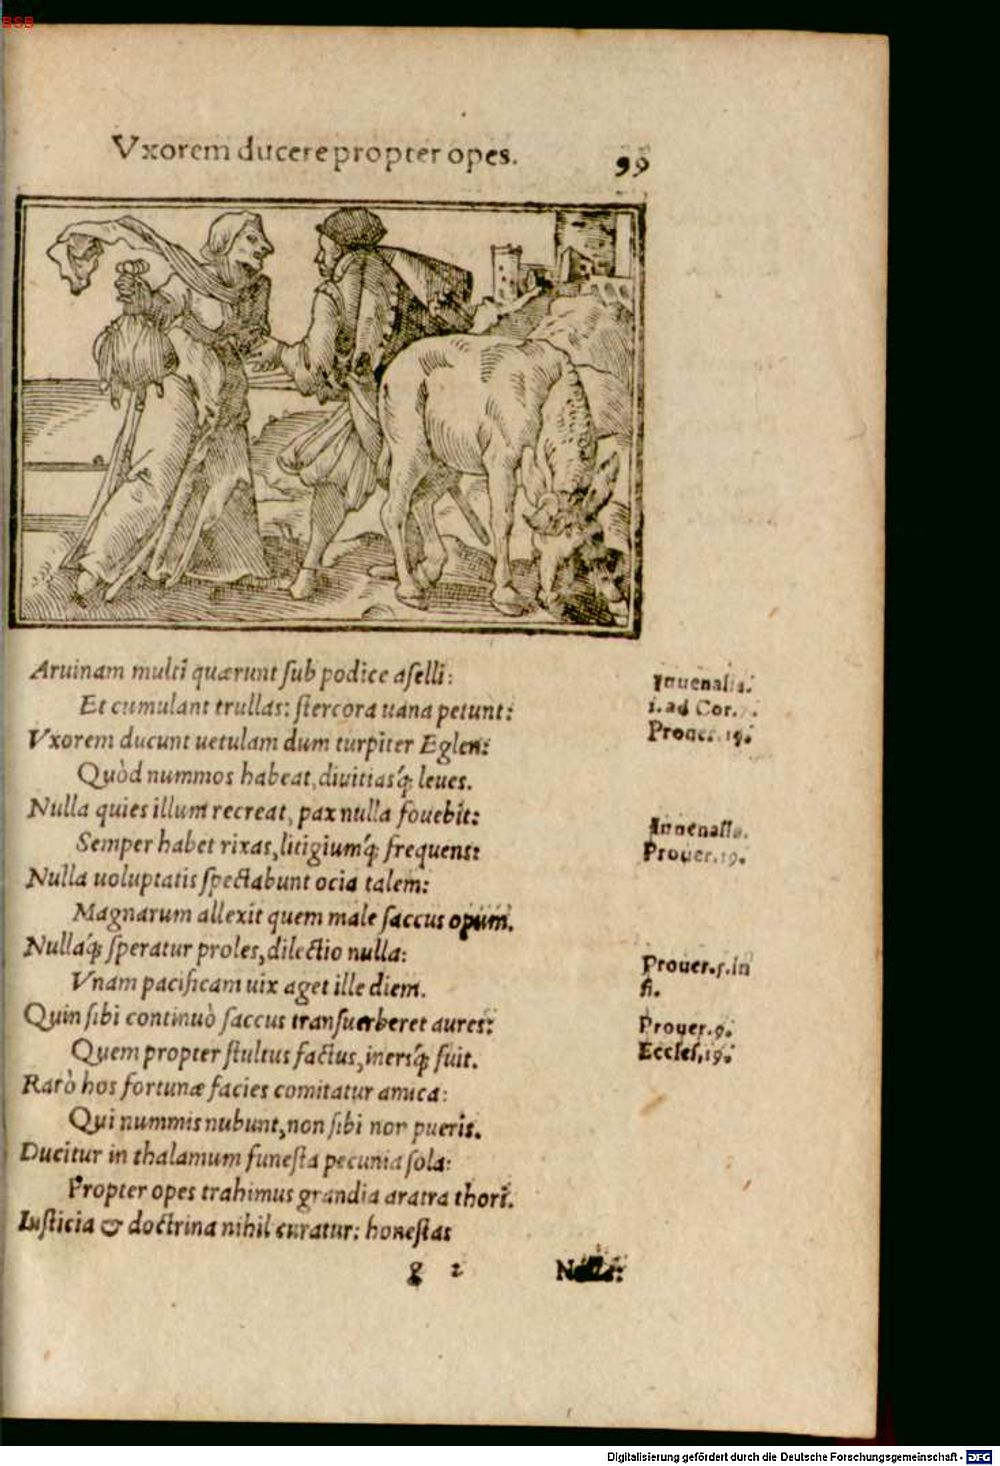 BSB
Vxorem ducere propter opes.
99
Aruinam multi quærunt ſub podice aſelli:
Et cumulant trullas: ſtercora uana petunt:
Vxorem ducunt uetulam dum turpiter Eglen:
Quòd nummos habeat, diuitiasq́; leues.
Nulla quies illum recreat, pax nulla fouebit:
Semper habet rixas, litigiumq́; frequens:
Nulla uoluptatis ſpectabunt ocia talem:
Magnarum allexit quem male ſaccus opum.
Nullaq́; ſperatur proles, dilectio nulla:
Vnam pacificam uix aget ille diem.
Quin ſibi continuò ſaccus tranſuerberet aures:
Quem propter ſtultus factus, inersq́; fuit.
Rarò hos fortunæ facies comitatur amica:
Qui nummis nubunt, non ſibi non pueris.
Ducitur in thalamum funeſta pecunia ſola:
Propter opes trahimus grandia aratra thori.
Iuſticia & doctrina nihil curatur: honeſtas
Iuuenalis.
i. ad Cor. 7.
Prouer. 19.
Iuuenalis.
Prouer. 19.
Prouer. 5. in
fi.
Prouer. 9.
Eccleſ. 19.
g 2
Digitalisierung gefördert durch die Deutsche Forschungsgemeinschaft - DFG